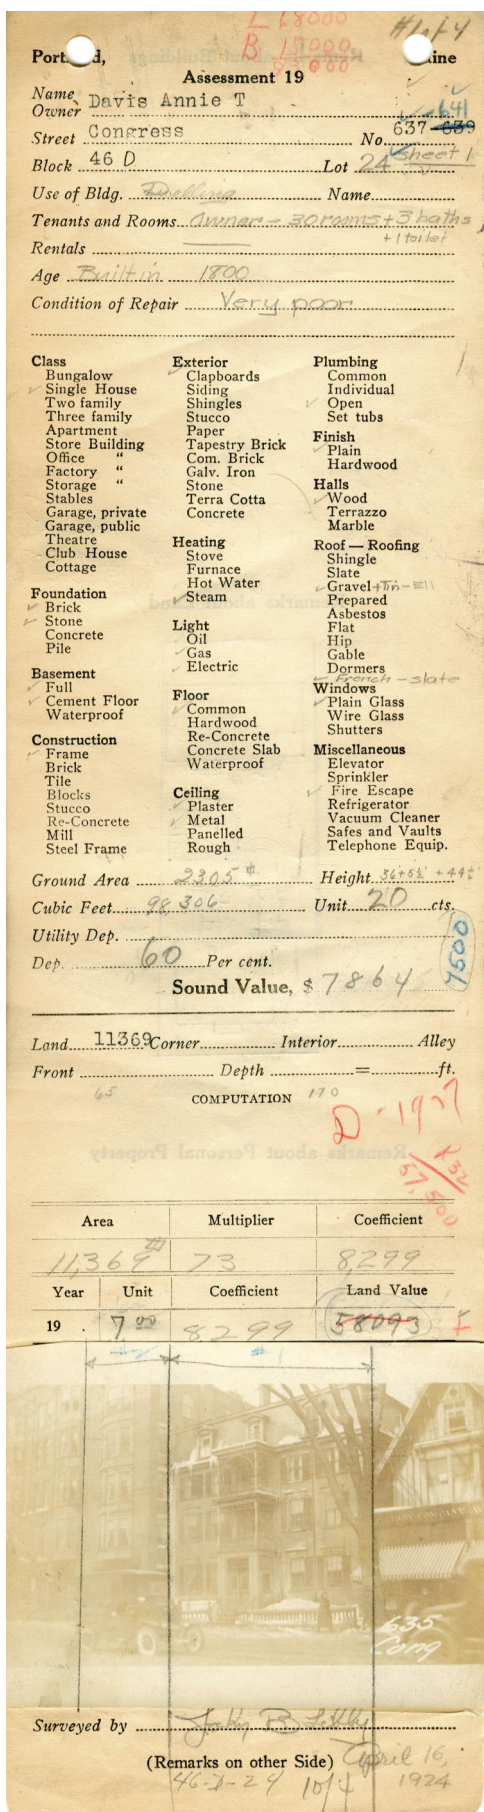 L 68000
#1 of 4
B 15000
83000
Portland, Maine
Assessment 19
Name
Owner Davis Annie T
641
Street Congress No. 637-639
Block 46 D Lot 24 sheet 1
Use of Bldg. Dwelling Name
Tenants and Rooms Owner - 30 rooms + 3 baths
+ 1 toilet
Rentals
Age Built in 1800
Condition of Repair Very poor
Class
Bungalow
Single House
Two family
Three family
Apartment
Store Building
Office "
Factory "
Storage "
Stables
Garage, private
Garage, public
Theatre
Club House
Cottage
Foundation
Brick
Stone
Concrete
Pile
Basement
Full
Cement Floor
Waterproof
Construction
Frame
Brick
Tile
Blocks
Stucco
Re-Concrete
Mill
Steel Frame
Exterior
Clapboards
Siding
Shingles
Stucco
Paper
Tapestry Brick
Com. Brick
Galv. Iron
Stone
Terra Cotta
Concrete
Heating
Stove
Furnace
Hot Water
Steam
Light
Oil
Gas
Electric
Floor
Common
Hardwood
Re-Concrete
Concrete Slab
Waterproof
Ceiling
Plaster
Metal
Panelled
Rough
Plumbing
Common
Individual
Open
Set tubs
Finish
Plain
Hardwood
Halls
Wood
Terrazzo
Marble
Roof — Roofing
Shingle
Slate
Gravel + Tin - Ell
Prepared
Asbestos
Flat
Hip
Gable
Dormers
French - slate
Windows
Plain Glass
Wire Glass
Shutters
Miscellaneous
Elevator
Sprinkler
Fire Escape
Refrigerator
Vacuum Cleaner
Safes and Vaults
Telephone Equip.
Ground Area 2305 Height
Cubic Feet 98,306 Unit 20 cts.
Utility Dep.
Dep. 60 Per cent.
7500
Sound Value, $ 7864
Land 11369 Corner Interior Alley
Front Depth = ft.
65 COMPUTATION 170
D-1927
R32
57,500
Area Multiplier Coefficient
11,369 73 8,299
Year Unit Coefficient Land Value
19 . 7.00 8299 58093
635
Cong
Surveyed by
(Remarks on other Side)
April 16,
1924
46-D-24 1 of 4